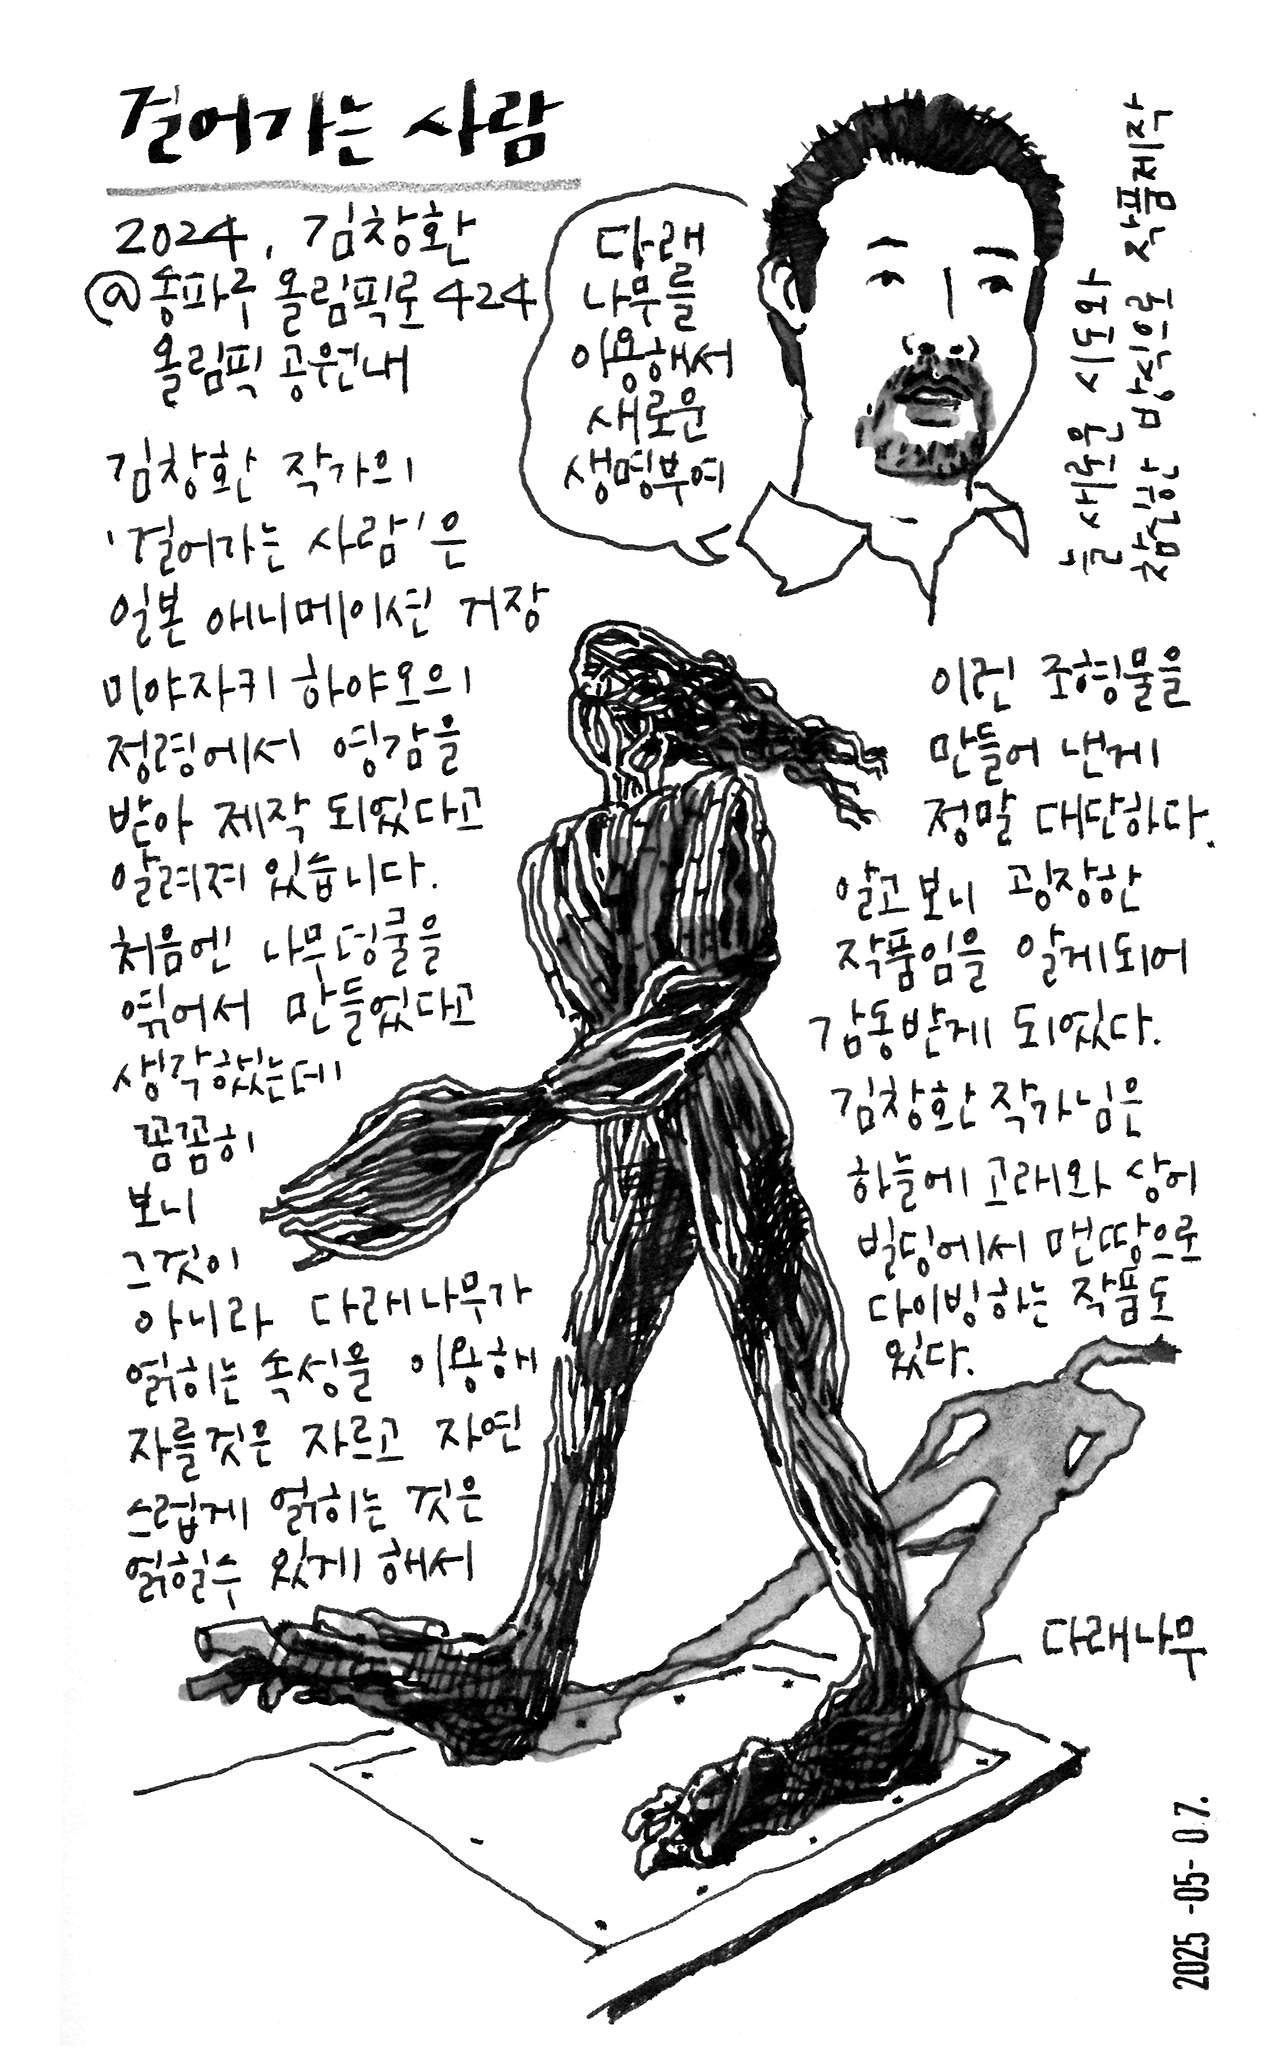 걸어가는 사람
2024, 김창환
@송파구 올림픽로 424
올림픽 공원내
다래
나무를
이용해서
새로운
생명부여
늘 새로운 시도와
참신한 방식으로 작품제작
김창환 작가의
'걸어가는 사람'은
일본 애니메이션 거장
미야자키 하야오의
정령에서 영감을
받아 제작 되었다고
알려져 있습니다.
처음엔 나무덩쿨을
엮어서 만들었다고
생각했는데
꼼꼼히
보니
그것이
아니라 다래나무가
얽히는 속성을 이용해
자를것은 자르고 자연
스럽게 얽히는 것은
얽힐수 있게 해서
이런 조형물을
만들어 낸게
정말 대단하다.
알고보니 굉장한
작품임을 알게되어
감동받게 되었다.
김창환 작가님은
하늘에 고래와 상어
빌딩에서 맨땅으로
다이빙하는 작품도
있다.
다래나무
2025 -05- 07.